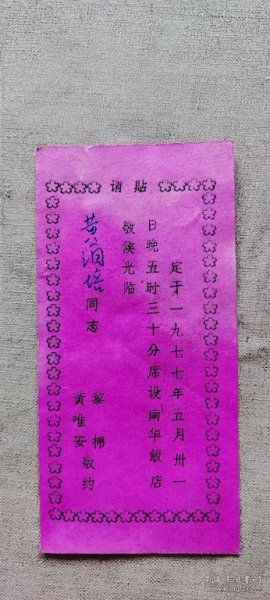 请贴
定于一九七七年五月卅一
日晚五时三十分席设南华饭店
敬候光临
黄润培同志
黎棉
黄唯安敬约